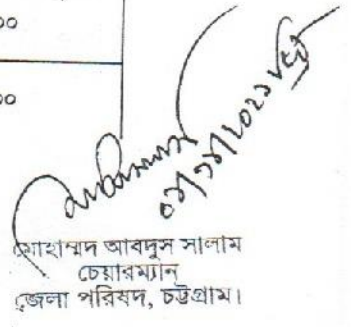 ০০
০০
মোহাম্মদ আবদুস সালাম
চেয়ারম্যান
জেলা পরিষদ, চট্টগ্রাম।